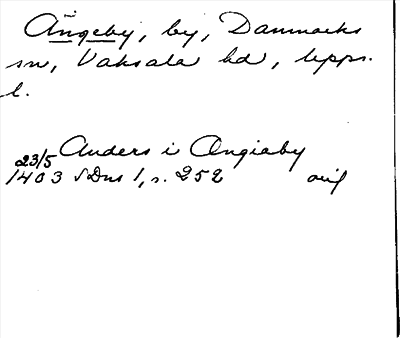 Ängeby, by, Danmarks
sn, Vaksala hd, Upps.
l.
Anders i Ængiaby
23/5
1403 SDns 1, s. 252 avs